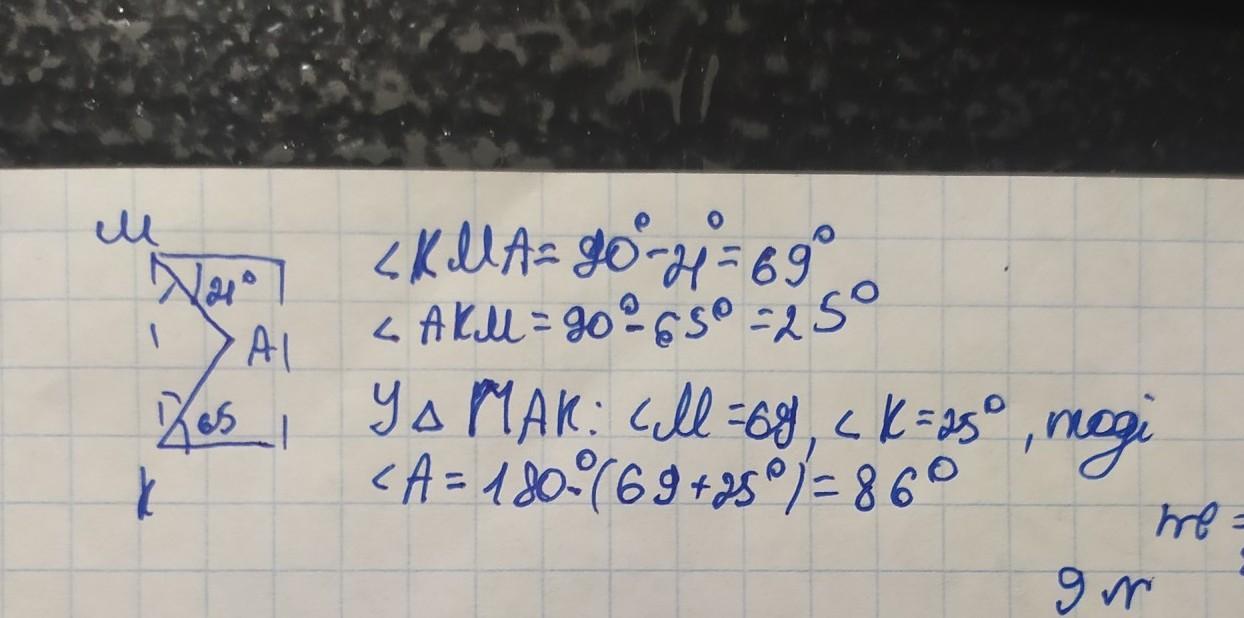 М
21°
A
65
K
<KMA= 90°-21°= 69°
< AKM = 90°-65° = 25°
У Δ МАК: <M =69, < K=25°, тоді
<A = 180-°(69+25°)= 86°
9